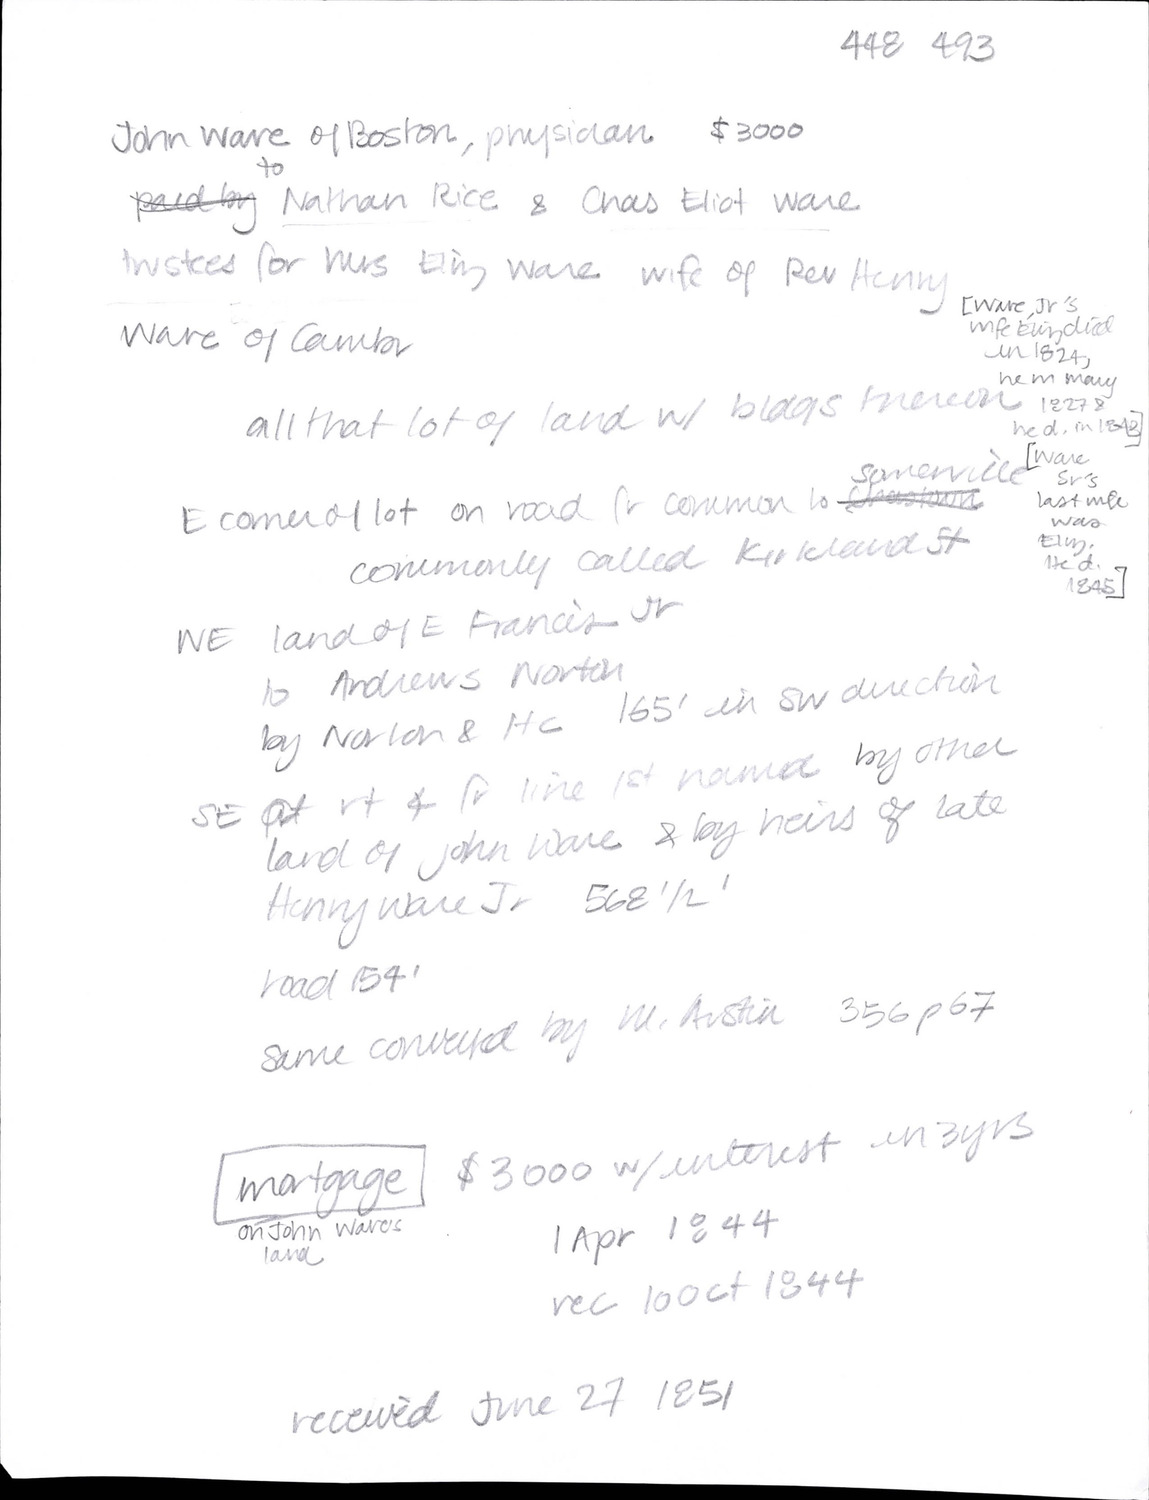 448 493
John Ware of Boston, physician $3000
to
paid by Nathan Rice & Chas Eliot Ware
trustees for Mrs Eliz Ware wife of Rev Henry
Ware of Cambr
[Ware, Jr's
wife Eliz died
in 1824,
he m Mary
1827 &
he d. in 1843]
all that lot of land w/ bldgs thereon
[Ware
Sr's
last wife
was
Eliz.
He d.
1845]
Somerville
E corner of lot on road fr common to Chastown
commonly called Kirkland St
NE land of E Francis Jr
to Andrews Norton
by Norton & HC 165' in SW direction
SE at rt ∡ fr line 1st named by other
land of John Ware & by heirs of late
Henry Ware Jr 568 1/2'
road 154'
same conveyed by M. Austin 356 p 67
mortgage $3000 w/ interest in 3 yrs
on John Ware's
land
1 Apr 1844
rec 10 Oct 1844
received June 27 1851